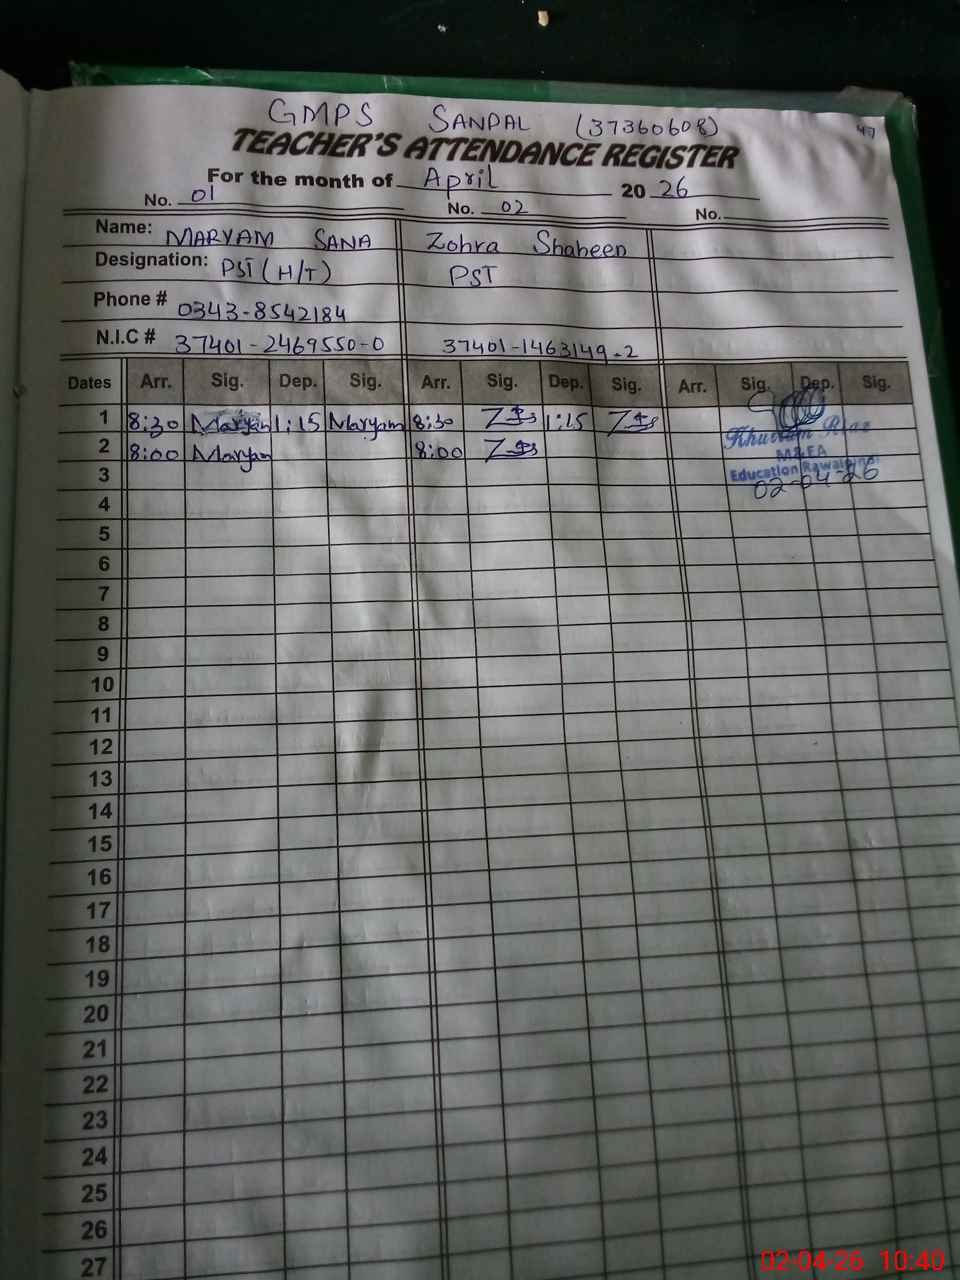 GMPS SANPAL (37360608)
47
TEACHER'S ATTENDANCE REGISTER
For the month of April 2026
No. 01 No. 02 No.
Name: MARYAM SANA Zohra Shaheen
Designation: PST (H/T) PST
Phone # 0343-8542184
N.I.C # 37401-2469550-0 37401-1463149-2
Dates Arr. Sig. Dep. Sig. Arr. Sig. Dep. Sig. Arr. Sig. Dep. Sig.
1 8:30 Maryam 1:15 Maryam 8:30 1:15
Khurram Riaz
2 8:00 Maryam 8:00
M&EA
3
Education Rawalpindi
02-04-26
4
5
6
7
8
9
10
11
12
13
14
15
16
17
18
19
20
21
22
23
24
25
26
27
02-04-26 10:40